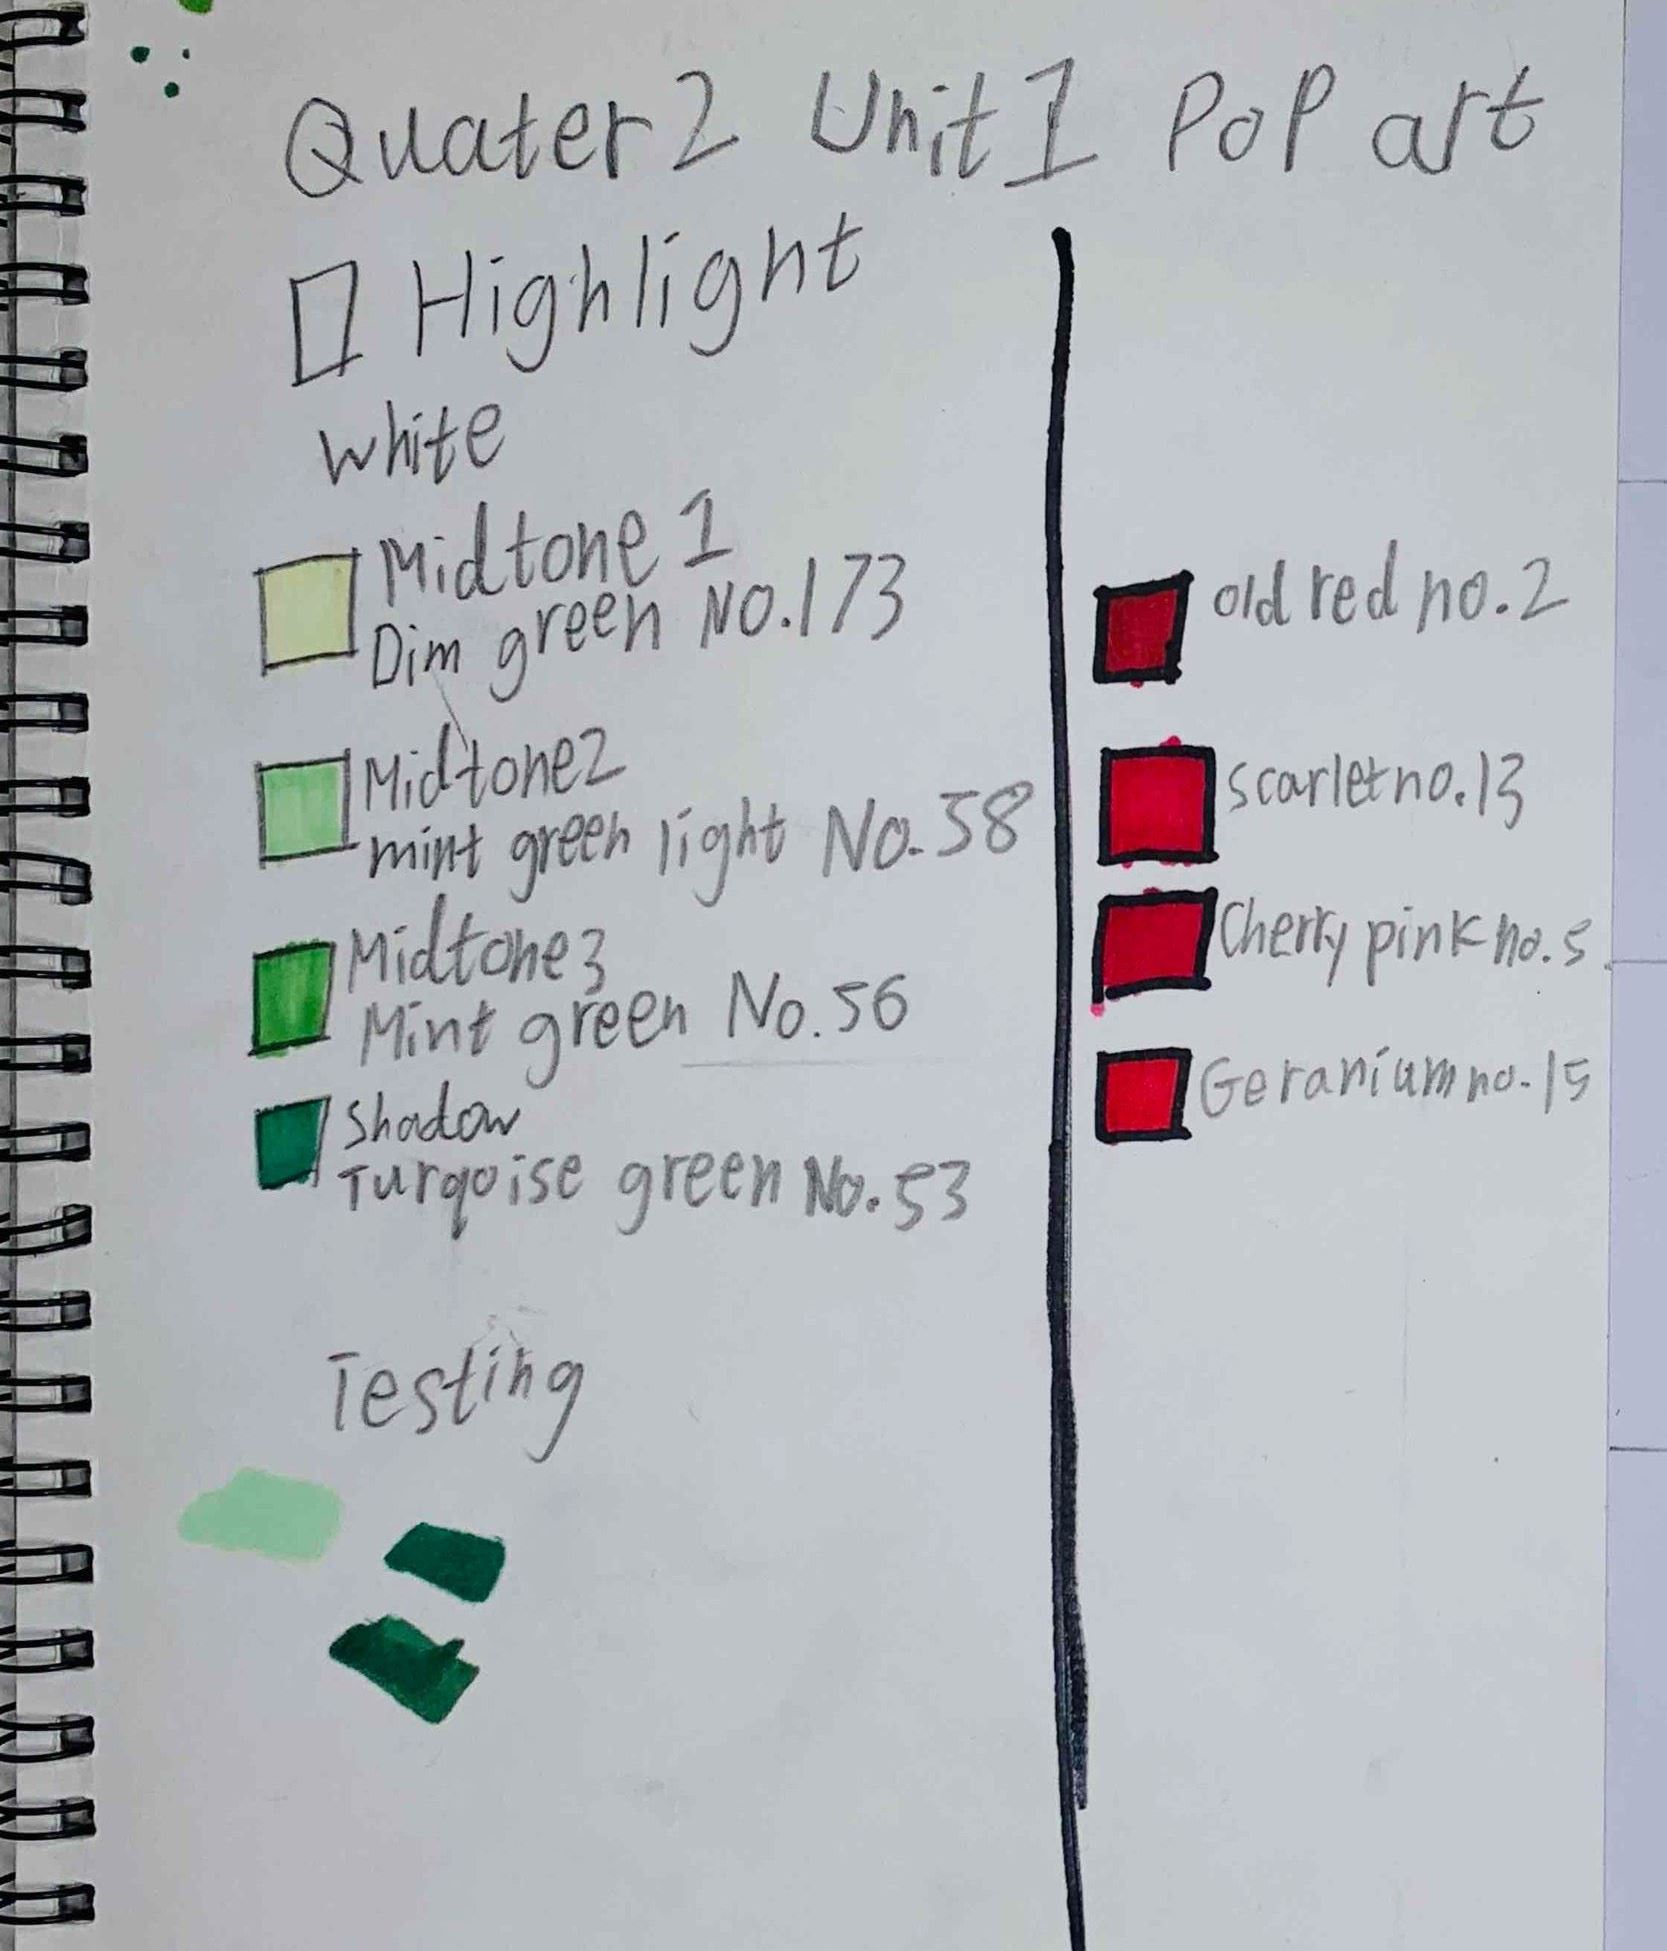 Quater 2 Unit 1 Pop art
Highlight
white
Midtone 1
Dim green No.173
Midtone2
mint green light No.58
Midtone3
Mint green No.56
Shadow
Turqoise green No.53
Testing
old red no.2
scarlet no.13
Cherry pink no.5
Geranium no.15